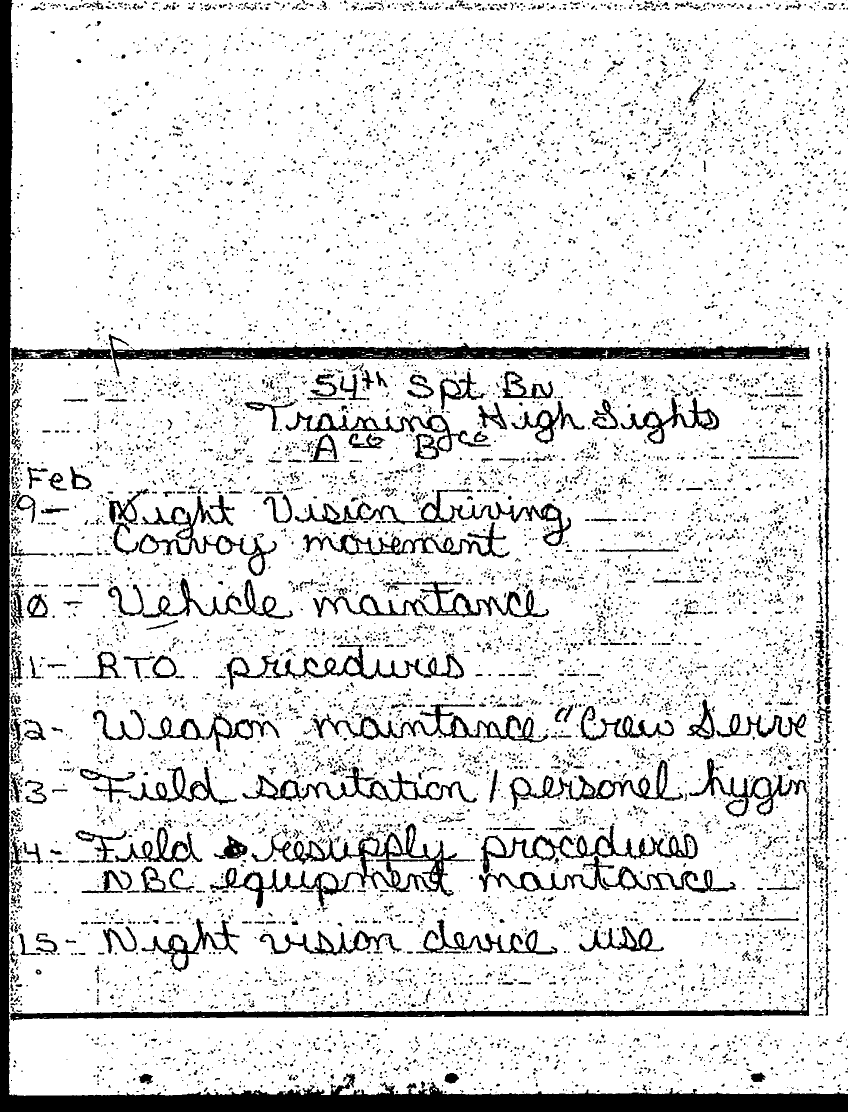 54th Spt Bn
Training High Sights
A co B co
Feb
9- Night Vision driving
Convoy movement
10- Vehicle maintance
11- RTO pricedures
12- Weapon maintance "Crew Serve
13- Field sanitation / personel hygin
14- Field resupply procedures
NBC equipment maintance
15- Night vision device use